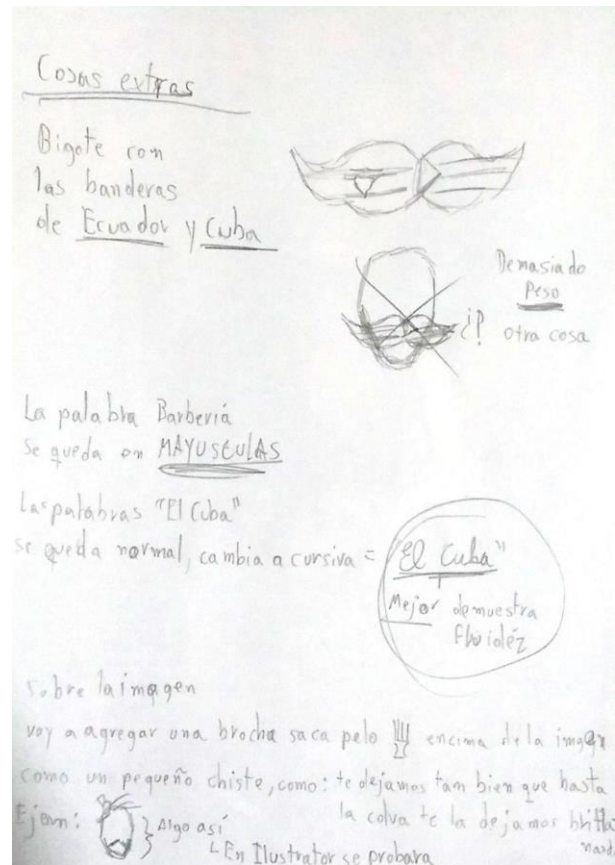 Cosas extras
Bigote con
las banderas
de Ecuador y Cuba
Demasiado
Peso
¿? otra cosa
La palabra Barbería
se queda en MAYUSCULAS
Las palabras "El Cuba"
se queda normal, cambia a cursiva = "El Cuba"
Mejor demuestra
fluidéz
sobre la imagen
voy a agregar una brocha saca pelo encima de la imagen
como un pequeño chiste, como: te dejamos tam bien que hasta
la calva te la dejamos brilla
nando
Ejem: Algo así
En Ilustrator se probara